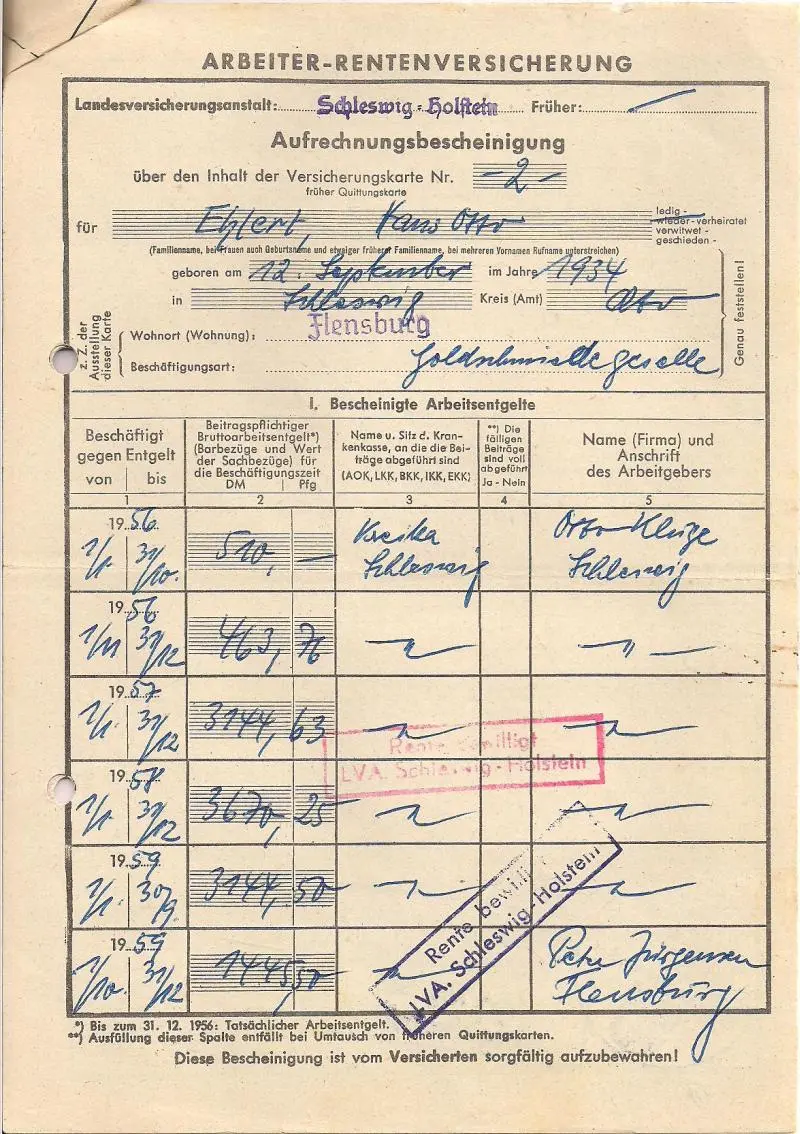 ARBEITER-RENTENVERSICHERUNG
Landesversicherungsanstalt: Schleswig-Holstein Früher: —
Aufrechnungsbescheinigung
über den Inhalt der Versicherungskarte Nr. -2-
früher Quittungskarte
für Ehlert, Hans Otto
ledig -
wieder-verheiratet
verwitwet -
geschieden -
(Familienname, bei Frauen auch Geburtsname und etwaiger früherer Familienname, bei mehreren Vornamen Rufname unterstreichen)
geboren am 12. September im Jahre 1934
in Schleswig Kreis (Amt)
Genau feststellen!
z. Z. der Ausstellung dieser Karte
Wohnort (Wohnung): Flensburg
Beschäftigungsart: Goldschmiedegeselle
I. Bescheinigte Arbeitsentgelte
Beschäftigt gegen Entgelt
von bis
Beitragspflichtiger Bruttoarbeitsentgelt*) (Barbezüge und Wert der Sachbezüge) für die Beschäftigungszeit
DM Pfg
Name u. Sitz d. Krankenkasse, an die die Beiträge abgeführt sind
(AOK, LKK, BKK, IKK, EKK)
**) Die fälligen Beiträge sind voll abgeführt
Ja - Nein
Name (Firma) und Anschrift des Arbeitgebers
1 2 3 4 5
1956
1/1 31/10. 510, — Kreika Schleswig Otto Kluge Schleswig
1956
1/11 31/12 463, 76 — " — — " —
1957
1/1. 31/12 3144, 63 — " — — " —
1958
1/1 31/12 3670, 25 — " — — " —
1959
1/1. 30/9. 3144, 50 — " — — " —
1959
1/10. 31/12 1445, 50 — " — Peter Jürgensen Flensburg
Rente bewilligt
LVA. Schleswig-Holstein
Rente bewilli
LVA. Schleswig-Holstein
*) Bis zum 31. 12. 1956: Tatsächlicher Arbeitsentgelt.
**) Ausfüllung dieser Spalte entfällt bei Umtausch von früheren Quittungskarten.
Diese Bescheinigung ist vom Versicherten sorgfältig aufzubewahren!